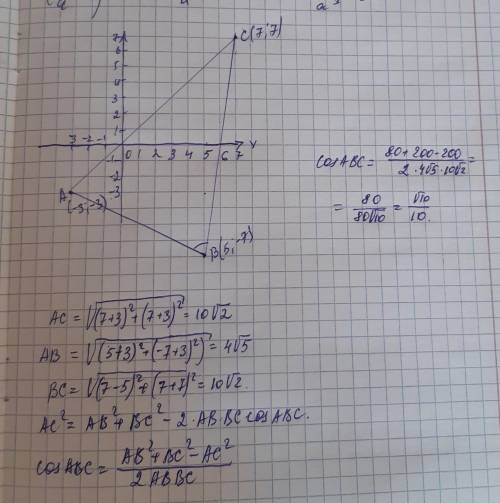 7
6
5
4
3
2
1
C(7;7)
-3 -2 -1 0 1 2 3 4 5 6 7 Y
-1
-2
-3
A
(-3;-3)
B(5;-7)
cosABC = (80+200-200)/(2·4√5·10√2) =
= 80/(80√10) = √10/10.
AC = √((7+3)²+(7+3)²) = 10√2
AB = √((5+3)²+(-7+3)²) = 4√5
BC = √((7-5)²+(7+7)²) = 10√2.
AC² = AB²+BC²-2·AB·BC cosABC.
cosABC = (AB²+BC²-AC²)/(2ABBC)